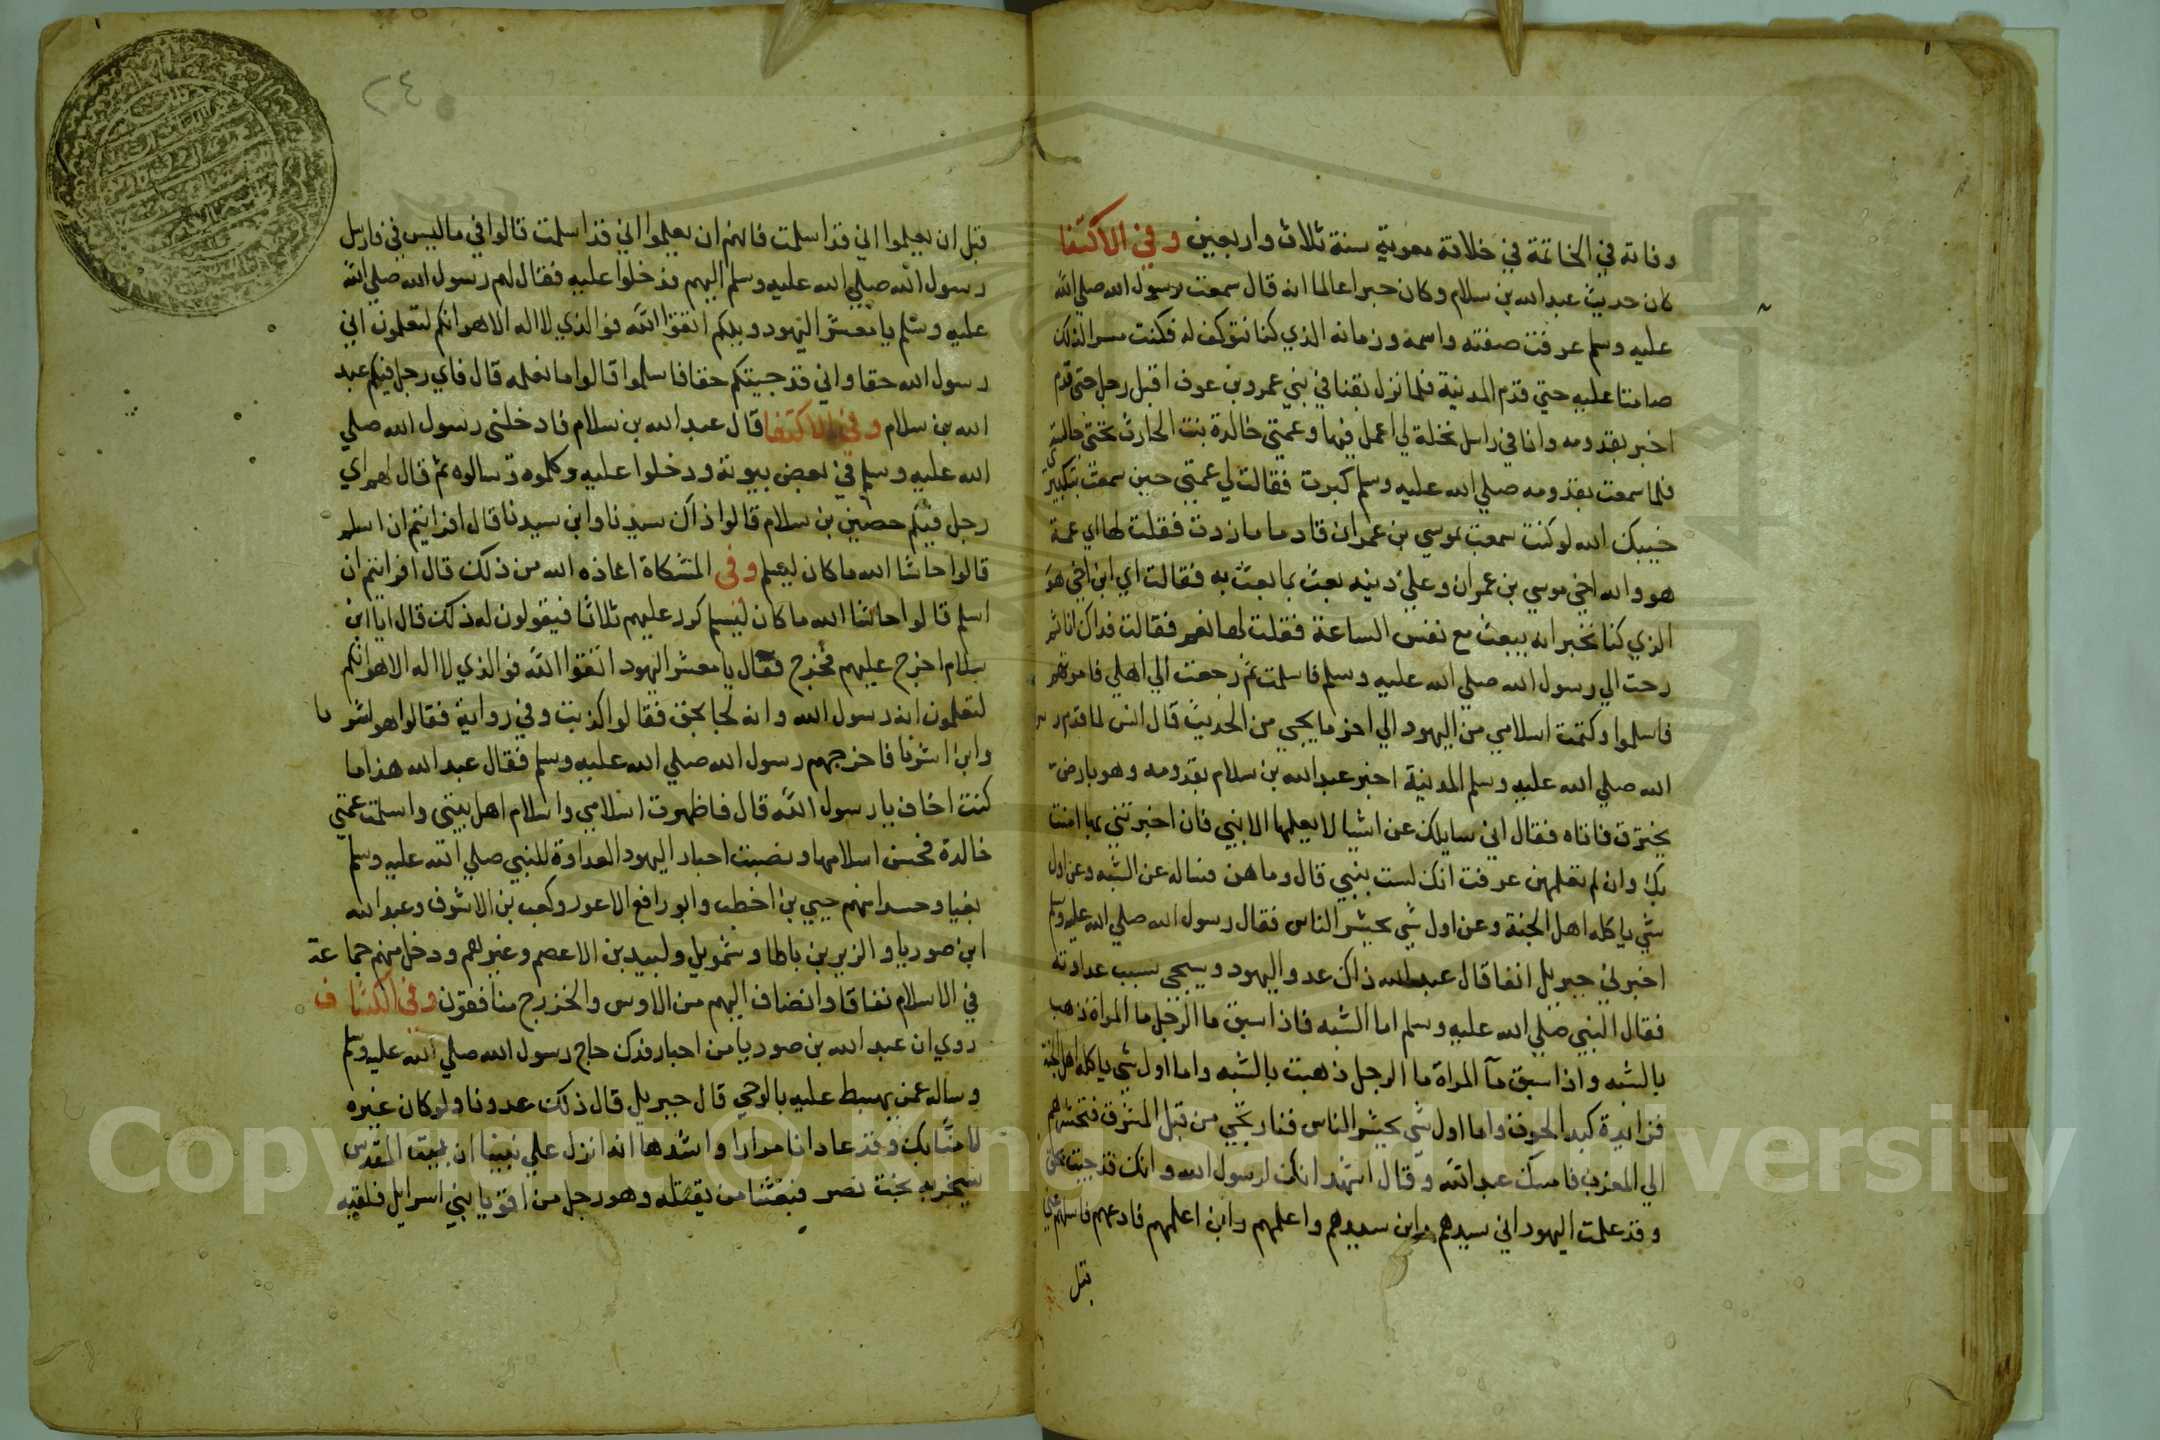 وفاته في الخاتمة في خلافة معوية سنة ثلاث واربعين وفي الاكتفا
كان حديث عبد الله بن سلام وكان حبرا عالما انه قال سمعت برسول الله صلي الله
عليه وسلم عرفت صفته واسمه وزمانه الذي كنا نتوكف له فكنت مسرا لذلك
صامتا عليه حتي قدم المدينة فلما نزل بقبا في بني عمرو بن عوف اقبل رجل حتي
اخبر بقدومه وانا في راس نخلة لي اعمل فيها وعمتي خالدة بنت الحارث تحتي جالسة
فلما سمعت بقدومه صلي الله عليه وسلم كبرت فقالت لي عمتي حين سمعت تكبيري
خيبك الله لو كنت سمعت بموسي بن عمران قادما ما زدت فقلت لها اي عمة
هو والله اخي موسي بن عمران وعلي دينه بعث بما بعث به فقالت اي ابن اخي هو
الذي كنا نخبر انه يبعث مع نفس الساعة فقلت لها نعم فقالت فذاك اذا ثم
رحت الي رسول الله صلي الله عليه وسلم فاسلمت ثم رجعت الي اهلي فامرتهم
فاسلموا وكتمت اسلامي من اليهود الي اخر ما يجي من الحديث قال انس لما قدم رس
الله صلي الله عليه وسلم المدينة اخبر عبد الله بن سلام بقدومه وهو بارض
يخترق فاتاه فقال اني سايلك عن اشيا لا يعلمها الا نبي فان اخبرتني بها امنت
بك وان لم تعلمهن عرفت انك لست بنبي قال وما هن فساله عن الشبه وعن اول
شي ياكله اهل الجنة وعن اول شي يحشر الناس فقال رسول الله صلي الله عليه وسلم
اخبرني جبريل انفا قال عبد الله ذاك عدو اليهود ويجي سبب عداوته
فقال النبي صلي الله عليه وسلم اما الشبه فاذا سبق ما الرجل ما المراة ذهب
بالشبه واذا سبق مآ المراة ما الرجل ذهبت بالشبه واما اول شي ياكله اهل الجنة
فزايدة كبد الحوت واما اول شي يحشر الناس فنار تجي من قبل المشرق فتحشرهم
الي المغرب فامسك عبد الله وقال اشهد انك لرسول الله وانك قد جيت
وقد علمت اليهود اني سيدهم وابن سيدهم واعلمهم وابن اعلمهم فادعهم فاسلهم عني
قبل
٢٤
قبل ان يعلموا اني قد اسلمت فانهم ان يعلموا اني قد اسلمت قالوا في ما ليس في فارسل
رسول الله صلي الله عليه وسلم اليهم فدخلوا عليه فقال لهم رسول الله صلي الله
عليه وسلم يا معشر اليهود ويلكم اتقوا الله فوالذي لا اله الا هو انكم لتعلمون اني
رسول الله حقا واني قد جيتكم حقا فاسلموا قالوا ما نعلمه قال فاي رجل فيكم عبد
الله بن سلام وفي الاكتفا قال عبد الله بن سلام فادخلني رسول الله صلي
الله عليه وسلم في بعض بيوته ودخلوا عليه وكلموه وسالوه ثم قال لهم اي
رجل فيكم حصين بن سلام قالوا ذاك سيدنا وابن سيدنا قال افرايتم ان اسلم
قالوا حاشا الله ما كان ليسلم وفي المشكاة اعاذه الله من ذلك قال افرايتم ان
اسلم قالوا حاشا الله ما كان ليسلم كرر عليهم ثلاثا فيقولون له ذلك قال ايا ابن
سلام اخرج عليهم فخرج فقال يا معشر اليهود اتقوا الله فوالذي لا اله الا هو انكم
لتعلمون انه رسول الله وانه لجا بحق فقالوا كذبت وفي رواية فقالوا هو اشرنا
وابن اشرنا فاخرجهم رسول الله صلي الله عليه وسلم فقال عبد الله هذا ما
كنت اخاف يا رسول الله قال فاظهرت اسلامي واسلام اهل بيتي واسلمت عمتي
خالدة فحسن اسلامها ونصبت احبار اليهود العداوة للنبي صلي الله عليه وسلم
بغيا وحسدا منهم حيي بن اخطب وابو رافع الاعور وكعب بن الاشرف وعبد الله
ابن صوريا والزبير بن باطا وشمويل ولبيد بن الاعصم وغيرهم ودخل منهم جماعة
في الاسلام نفاقا وانضاف اليهم من الاوس والخزرج منافقون وفي الكشاف
روي ان عبد الله بن صوريا من احبار فدك حاج رسول الله صلي الله عليه وسلم
وساله عمن يهبط عليه بالوحي قال جبريل قال ذلك عدونا ولو كان غيره
لامنا بك وقد عادانا مرارا واشدها انه انزل علي نبينا ان بيت المقدس
سيخربه بخت نصر فبعثنا من يقتله وهو رجل من اقويا بني اسرايل فلقيه
Copyright © King Saud University